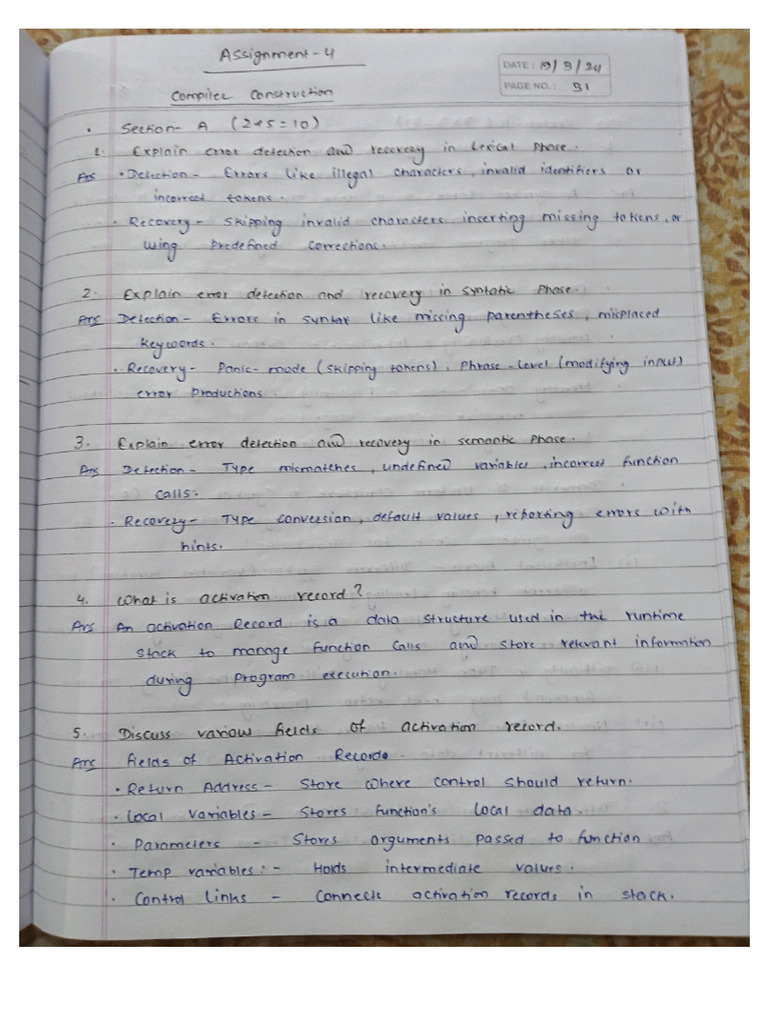 Assignment-4
DATE: 19/9/24
PAGE NO.: 31
Compiler Construction
• Section- A (2*5=10)
1. Explain error detection and recovery in Lexical Phase.
Ans • Detection - Errors like illegal characters, invalid identifiers or
incorrect tokens.
• Recovery - Skipping invalid characters inserting missing tokens, or
using Predefined corrections.
2. Explain error detection and recovery in syntatic Phase.
Ans Detection - Errors in syntax like missing parentheses, misplaced
keywords.
• Recovery - Panic-mode (skipping tokens), Phrase-level (modifying input)
error productions
3. Explain error detection and recovery in semantic Phase.
Ans Detection - Type mismatches, undefined variables, incorrect function
calls.
• Recovery - Type conversion, default values, reporting errors with
hints.
4. What is activation record?
Ans An activation Record is a data structure used in the runtime
stack to manage function calls and store relevant information
during program execution.
5. Discuss various fields of activation record.
Ans fields of Activation Records.
• Return Address - Store where control should return.
• Local Variables - Stores function's local data.
• Parameters - Stores arguments passed to function
• Temp variables: - Holds intermediate values.
• Control links - Connects activation records in stack.